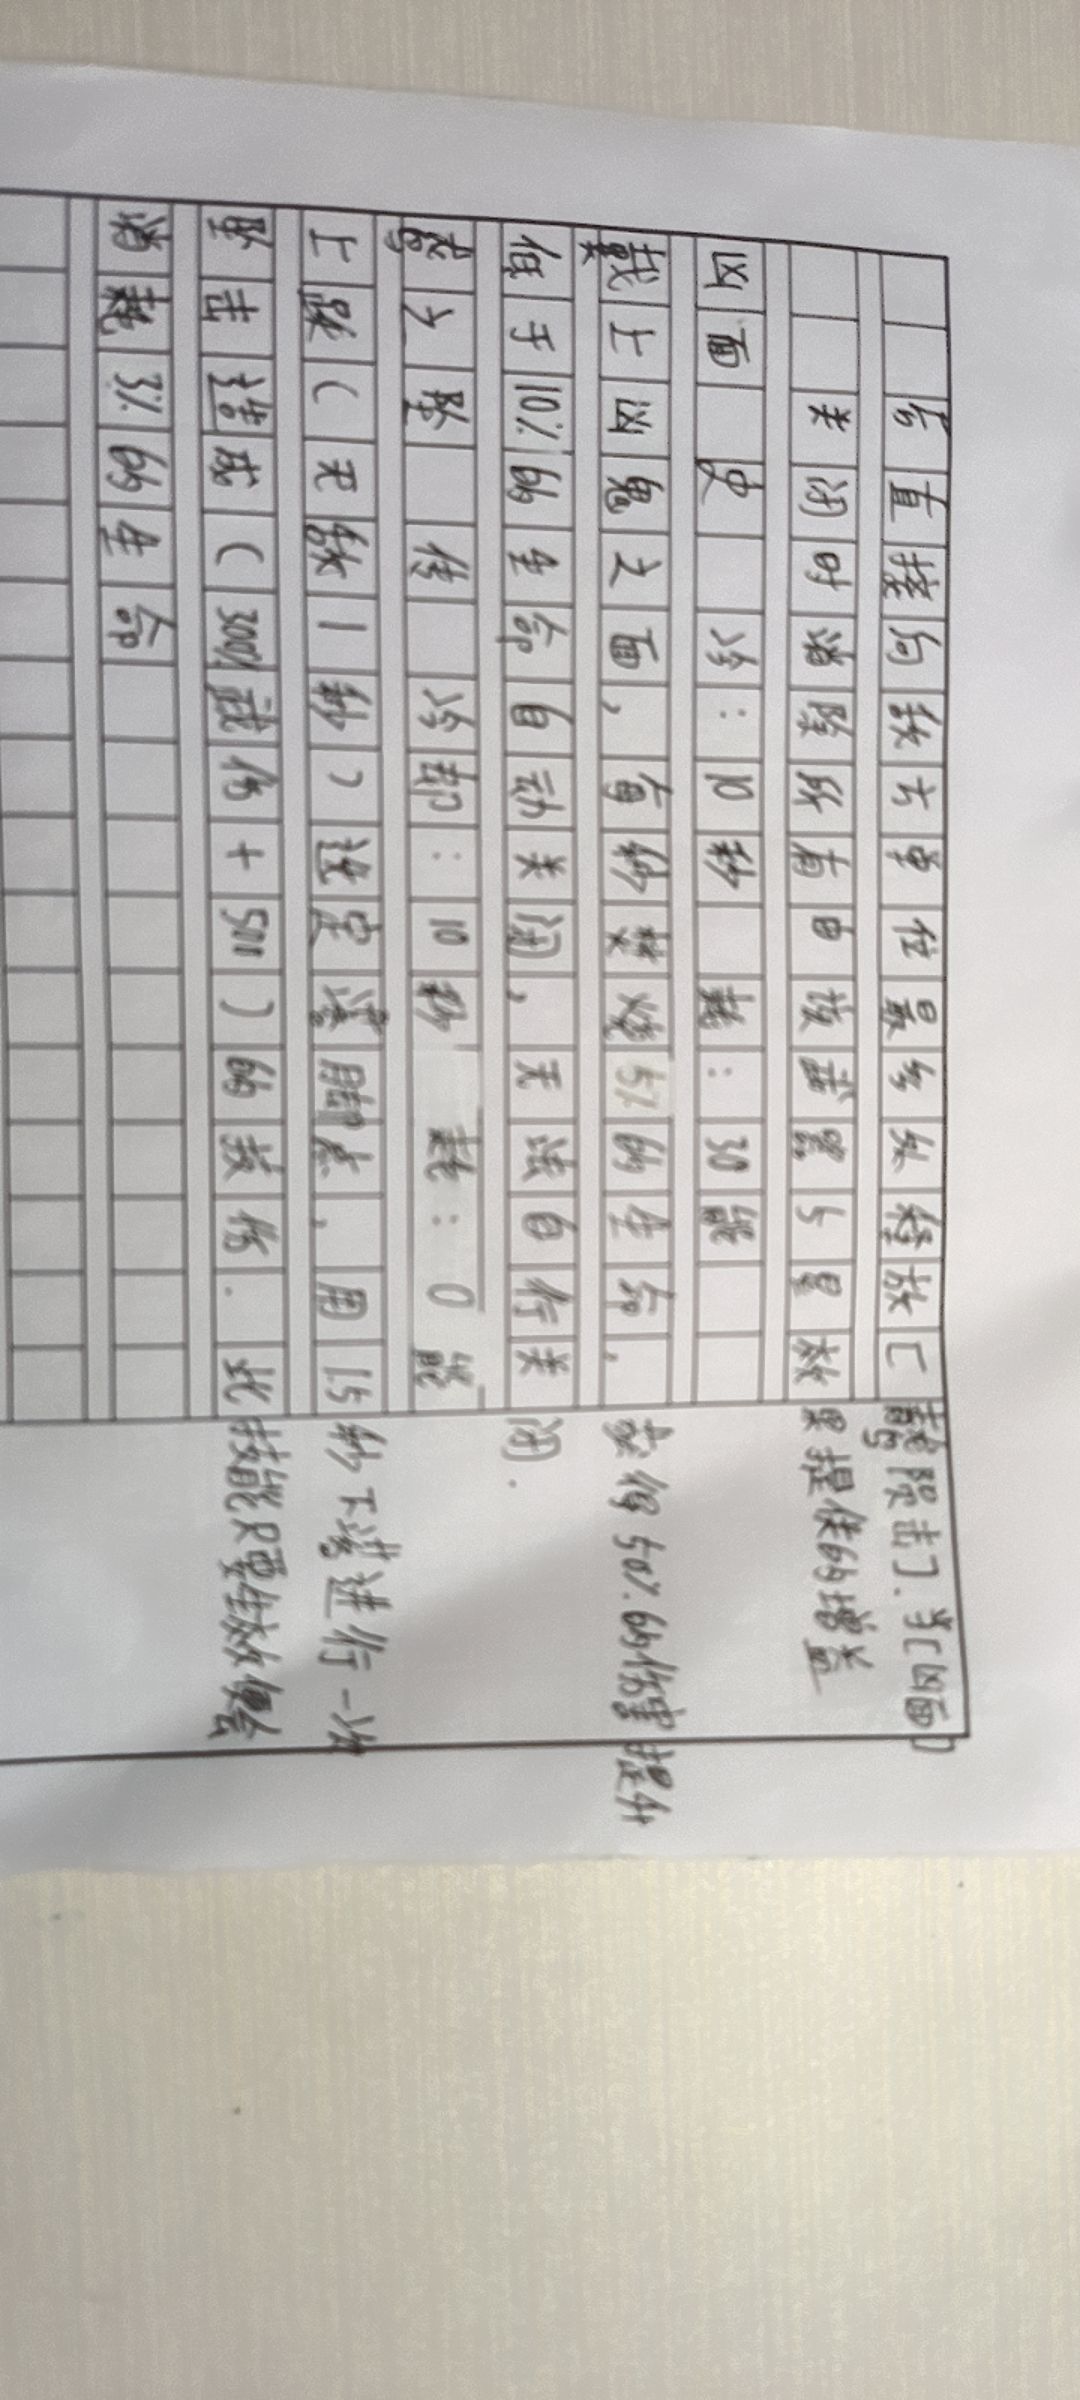 后直接向敌方单位最多处释放亡龄陨击了.当凶面
关闭时消除所有由战熙器与星效果提供的增益
凶面 史 冷:10秒 耗:30能
戴上凶鬼之面,每秒焚烧5%的生命.获得50%的伤害提升
低于10%的生命自动关闭,无法自行关闭.
高上坠 传 冷却:10秒 耗:0能
上跃(无敌1秒)选定落脚点,用1.5秒下落进行一次
坠击造成(300%武伤+500)的技伤.此技能只要生效便会
消耗3%的生命